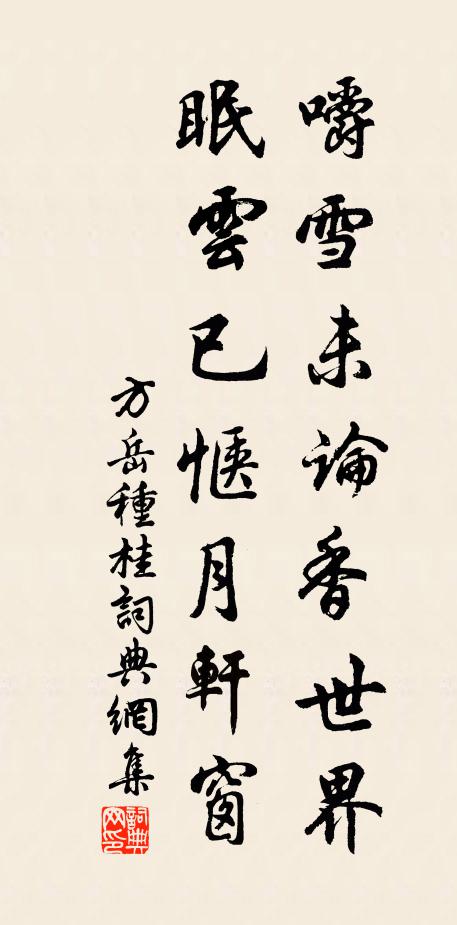 嚼雪未論香世界
眠雲已愜月軒窗
方岳種桂詞典網集
詞典网印